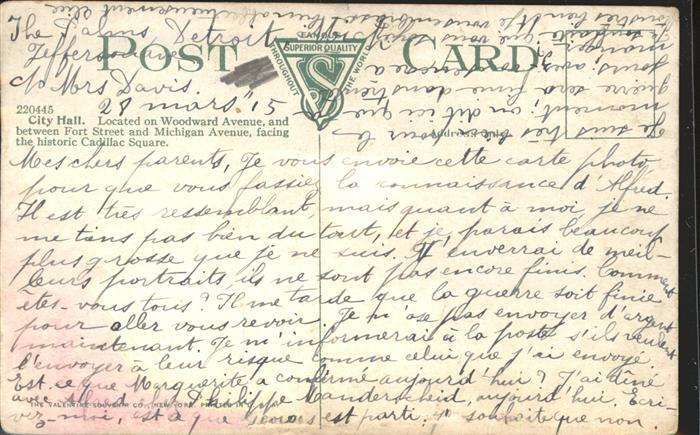 The Palms, Detroit
Jefferson
c/o Mrs Davis.
28 mars '15
POST CARD
FAMOUS
THROUGHOUT THE WORLD
SUPERIOR QUALITY
220445
City Hall. Located on Woodward Avenue, and
between Fort Street and Michigan Avenue, facing
the historic Cadillac Square.
Address Only
Mes chers parents, Je vous envoie cette carte photo
pour que vous fassiez la connaissance d'Alfred.
Il est très ressemblant, mais quant à moi je ne
me tans pas bien du tout, et je parais beaucoup
plus grosse que je ne suis. J'enverrai de meil-
leurs portraits, ils ne sont pas encore finis. Comment
êtes-vous tous? Il me tarde que la guerre soit finie
pour aller vous revoir. Je n'ose pas envoyer d'argent
maintenant. Je m'informerai à la poste s'ils veulent
l'envoyer à leur risque comme celui que j'ai envoyé.
Est-ce que Marguerite a confirmé aujourd'hui? J'ai dîné
avec Alfred Philippe Manderscheid, aujourd'hui. Ecri-
vez-moi, est-ce que est parti. Je souhaite que non.
THE VALENTINE-SOUVENIR CO., NEW YORK. PRINTED IN
Je suis très bien pour le
moment, on dit ici que la
guerre sera finie dans
jours, avez-vous
manger